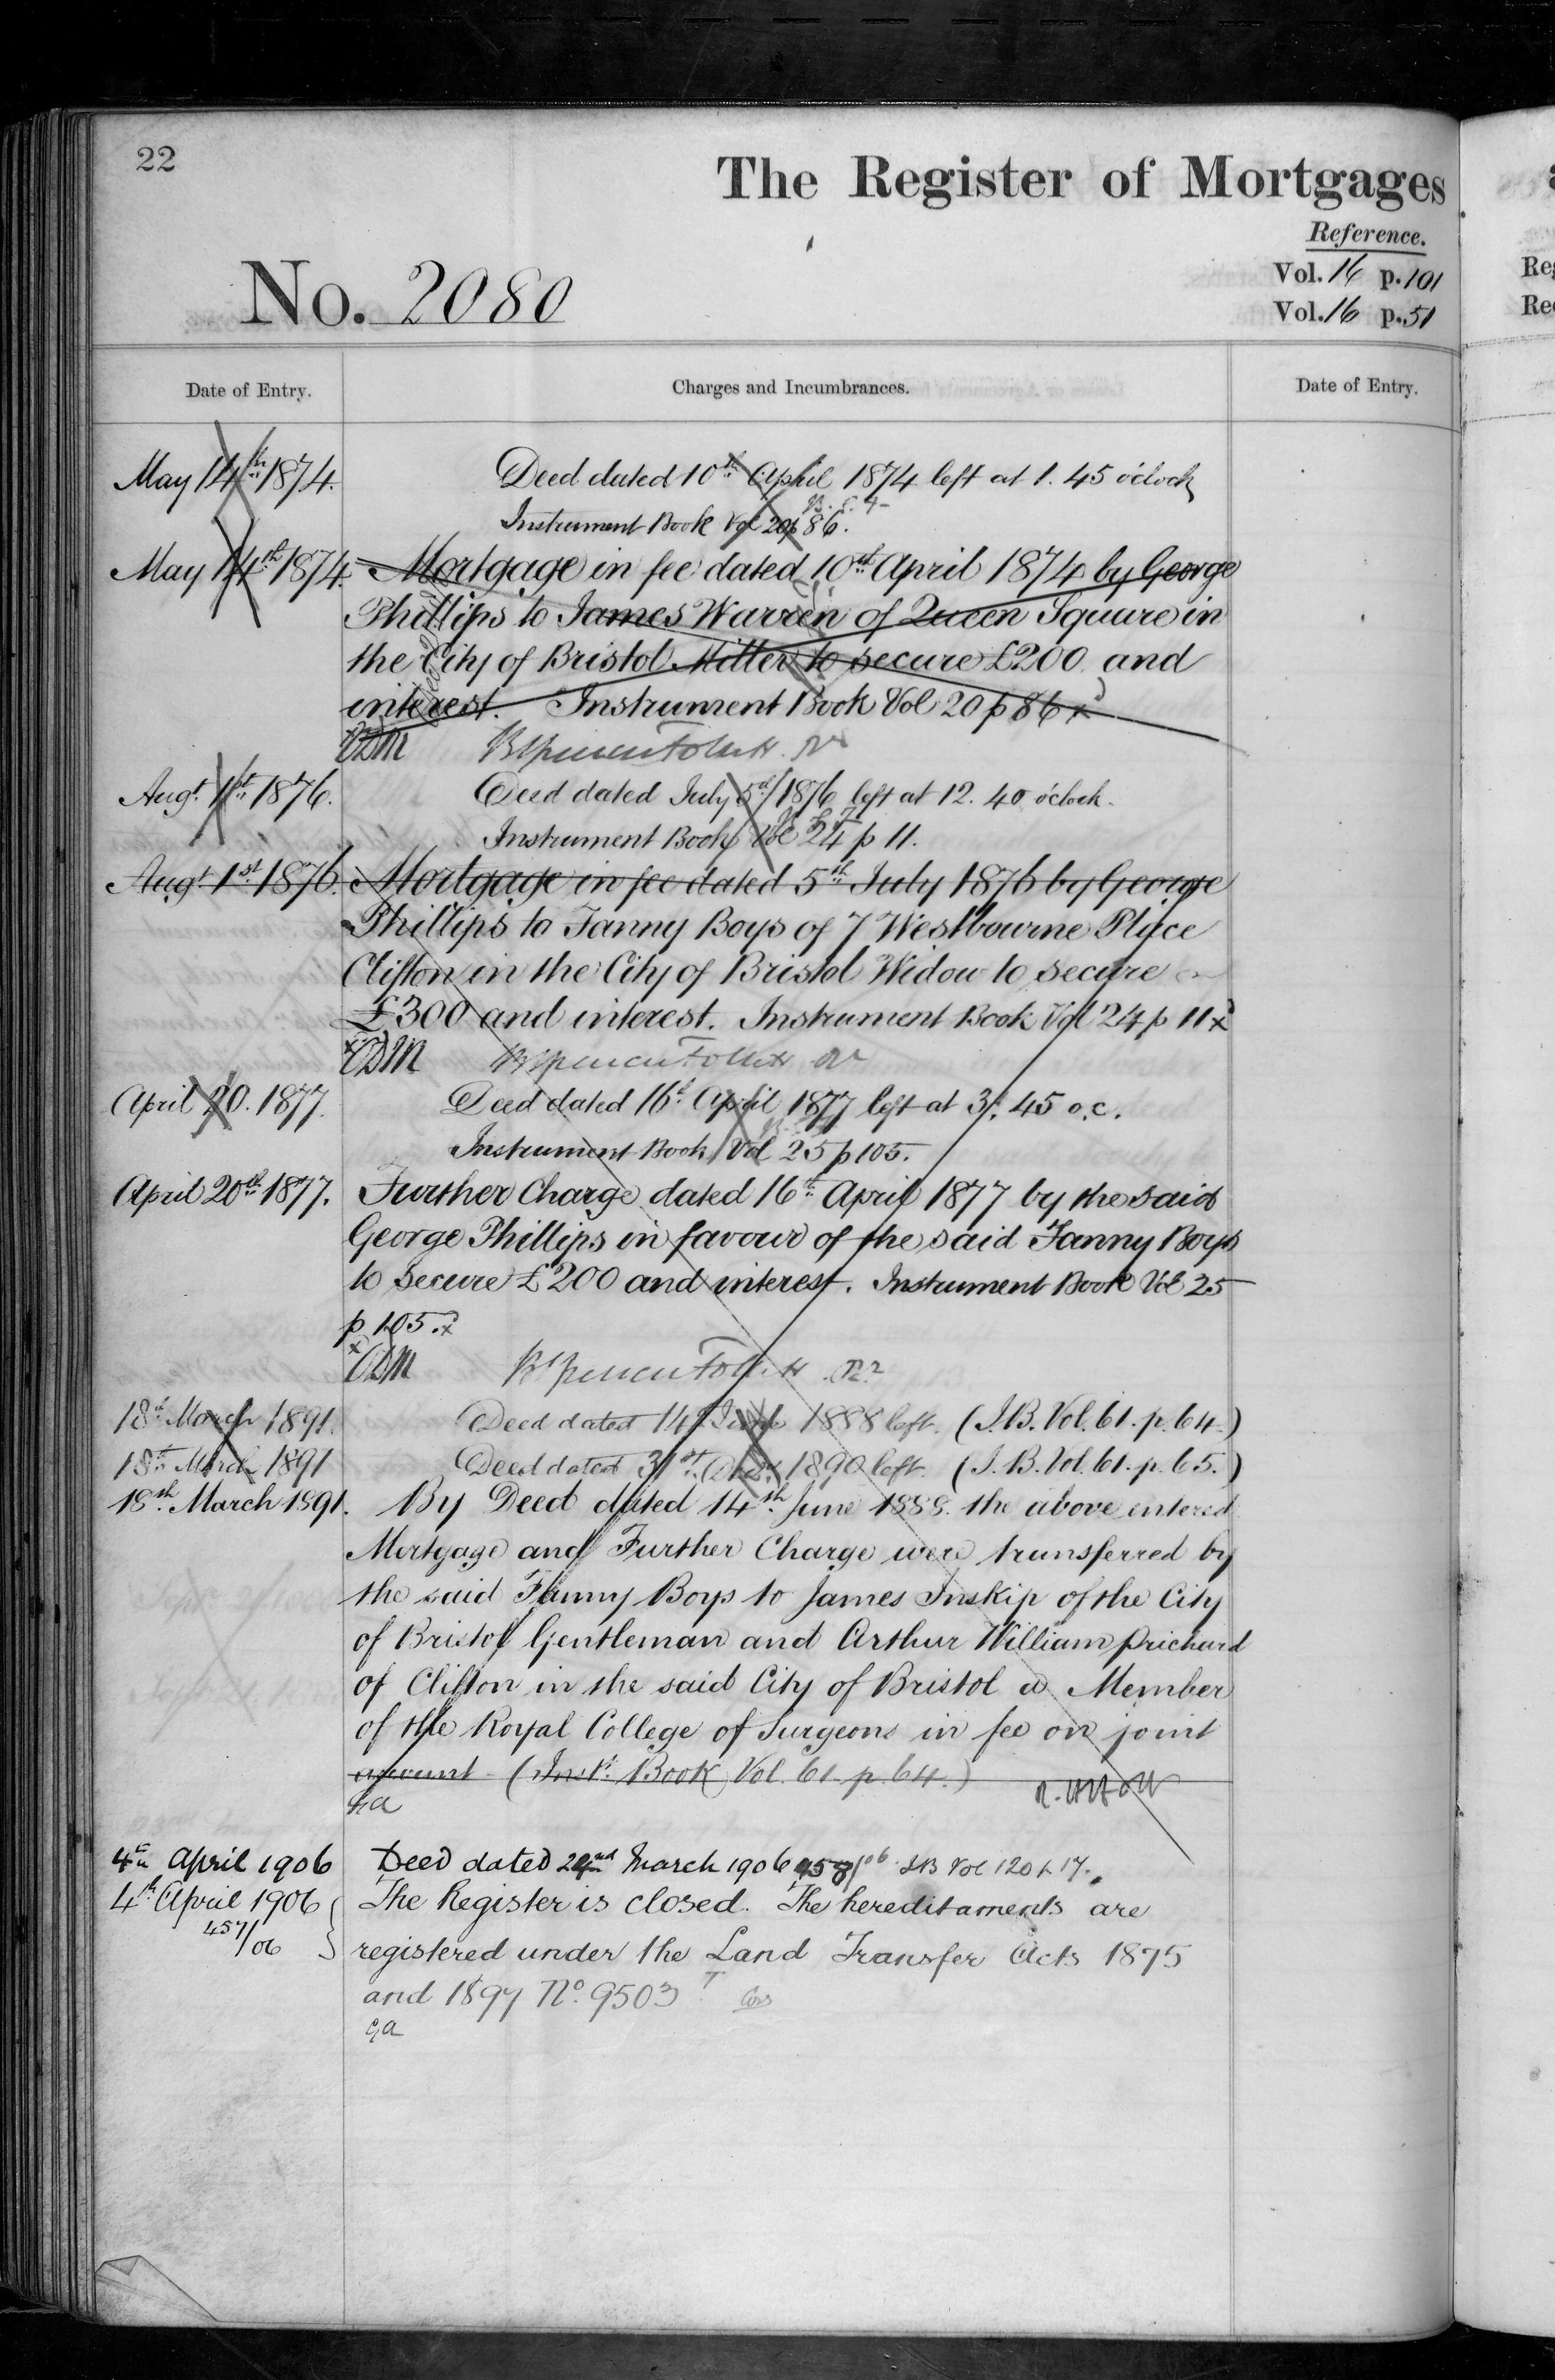 22
The Register of Mortgages
Reference.
Vol. 16 p. 101
Vol. 16 p. 51
No. 2080
Date of Entry.
Charges and Incumbrances.
Date of Entry.
May 14th 1874. Deed dated 10th April 1874 left at 1. 45 o'clock
Instrument Book Vol 20 p 86.
May 14th 1874. Mortgage in fee dated 10th April 1874 by George
Phillips to James Warren of Queen Square in
the City of Bristol Miller to secure £200 and
interest. Instrument Book Vol 20 p 86 x
Augt. 1st 1876. Deed dated July 5th 1876 left at 12. 40 o'clock.
Instrument Book Vol 24 p 11.
Augt 1st 1876. Mortgage in fee dated 5th July 1876 by George
Phillips to Fanny Boys of 7 Westbourne Place
Clifton in the City of Bristol Widow to secure
£300 and interest. Instrument Book Vol 24 p 11 x
April 20. 1877. Deed dated 16th April 1877 left at 3. 45 o.c.
Instrument Book Vol 25 p 105.
April 20th 1877. Further Charge dated 16th April 1877 by the said
George Phillips in favour of the said Fanny Boys
to secure £200 and interest. Instrument Book Vol 25
p 105. x
18th March 1891. Deed dated 14th June 1888 left. (I.B. Vol. 61. p. 64.)
18th March 1891 Deed dated 31st 1890 left. (I.B. Vol. 61. p. 65.)
18th March 1891. By Deed dated 14th June 1888. the above entered
Mortgage and Further Charge were transferred by
the said Fanny Boys to James Inskip of the City
of Bristol Gentleman and Arthur William Prichard
of Clifton in the said City of Bristol a Member
of the Royal College of Surgeons in fee on joint
account - (Inst. Book Vol. 61 p. 64.)
4th April 1906 Deed dated March 1906 IB Vol 120 p 17.
4th April 1906 The Register is closed. The hereditaments are
457/06 registered under the Land Transfer Acts 1875
and 1897 No. 9503
Reg